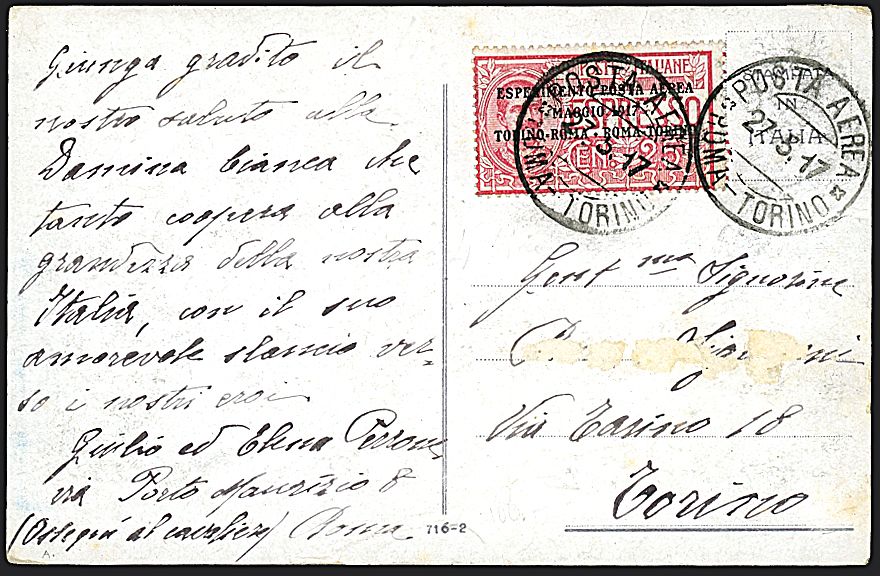 Giunga gradito il
nostro saluto alla
Damina bianca che
tanto coopera alla
grandezza della nostra
Italia, con il suo
amorevole slancio ver-
so i nostri eroi
Giulio ed Elena Perrone
via Porto Maurizio 8
(Ossequi al cavaliere) Roma
716-2
A.
POSTE ITALIANE
ESPERIMENTO POSTA AEREA
MAGGIO 1917
TORINO-ROMA · ROMA-TORINO
ESPRESSO
CEN. 25
POSTA AEREA
27.5.17
ROMA-TORINO
STAMPATA
IN
ITALIA
POSTA AEREA
27.5.17
ROMA-TORINO
Gent ma Signorine
Via 18
Torino